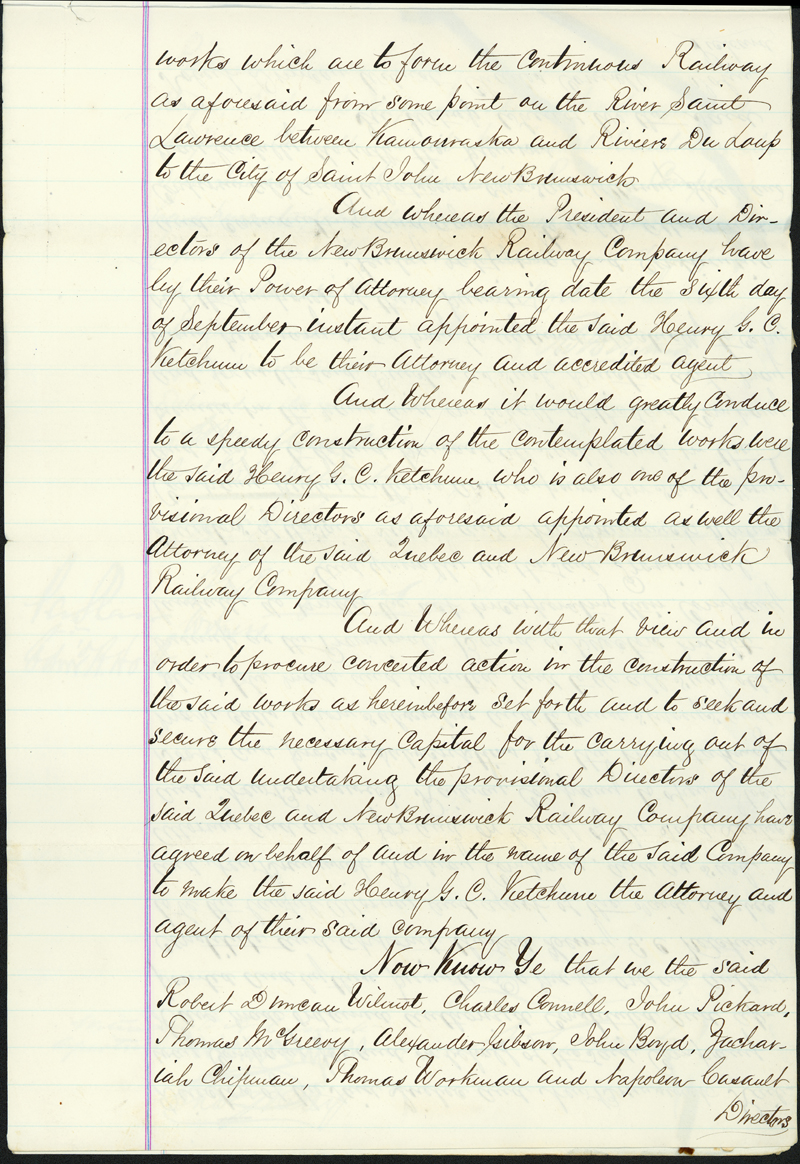 works which are to form the Continuous Railway
as aforesaid from some point on the River Saint
Lawrence between Kamouraska and Riviere Du Loup
to the City of Saint John New Brunswick
And whereas the President and Dir-
ectors of the New Brunswick Railway Company have
by their Power of Attorney bearing date the Sixth day
of September instant appointed the said Henry G. C.
Ketchum to be their Attorney and accredited agent
And Whereas it would greatly Conduce
to a speedy construction of the contemplated works were
the said Henry G. C. Ketchum who is also one of the pro-
visional Directors as aforesaid appointed as well the
Attorney of the said Quebec and New Brunswick
Railway Company
And Whereas with that view and in
order to procure concerted action in the construction of
the said works as hereinbefore set forth and to seek and
secure the necessary Capital for the carrying out of
the said undertaking the provisional Directors of the
said Quebec and New Brunswick Railway Company have
agreed on behalf of and in the name of the said Company
to make the said Henry G. C. Ketchum the Attorney and
agent of their said company
Now Know Ye that we the said
Robert Duncan Wilmot, Charles Connell, John Pickard,
Thomas McGreevy, Alexander Gibson, John Boyd, Zachar-
iah Chipman, Thomas Workman and Napoleon Casault
Directors